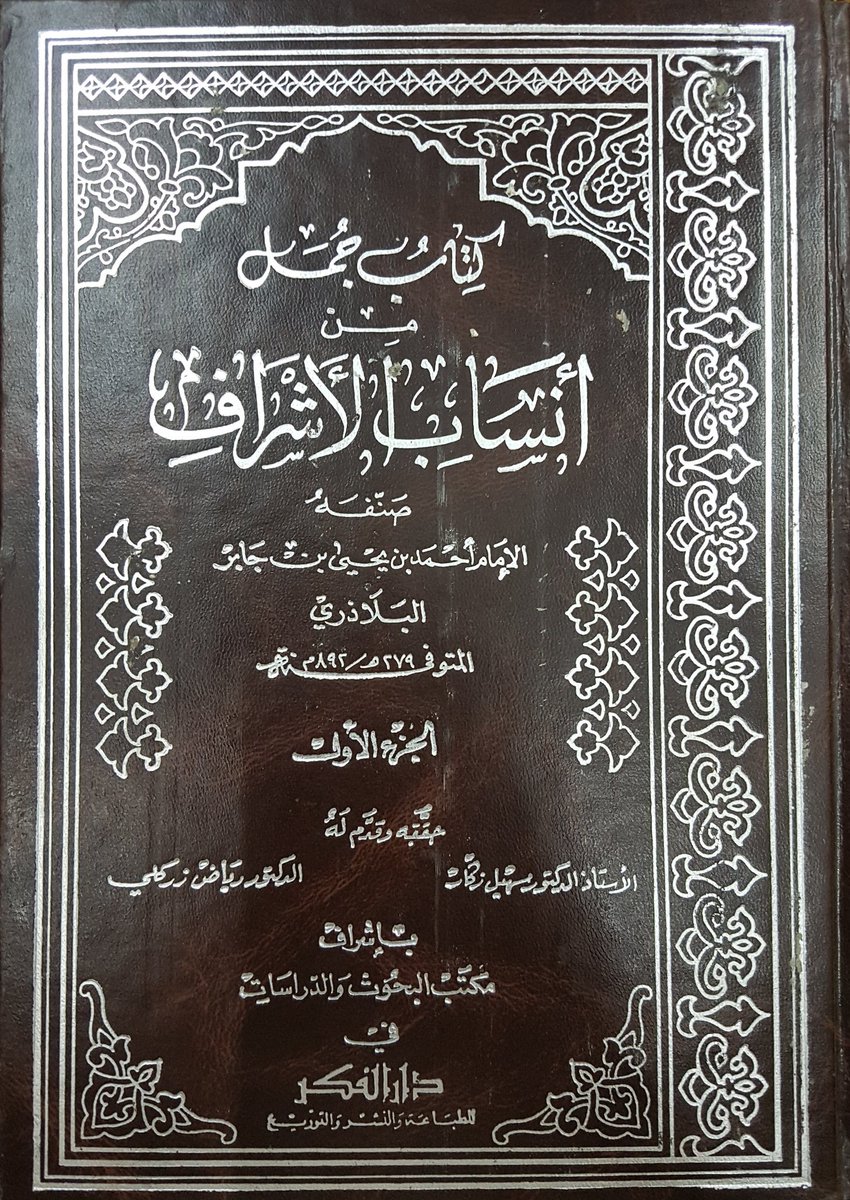 كِتَابُ جُمَل
مِن
أَنْسَابِ الْأَشْرَافِ
صَنَّفَهُ
الإِمَام أَحْمَد بن يحيىٰ بن جَابر
البَلَاذري
المتوفى سنة ٢٧٩هـ/٨٩٢م
الجزء الأول
حققه وقدّم لَهُ
الأستاذ الدكتور سهيل زكّار الدكتور رياض زركلي
بإشراف
مكتب البحوث وَالدّراسَات
في
دار الفكر
للطبَاعَة وَالنّشر وَالتوزيع